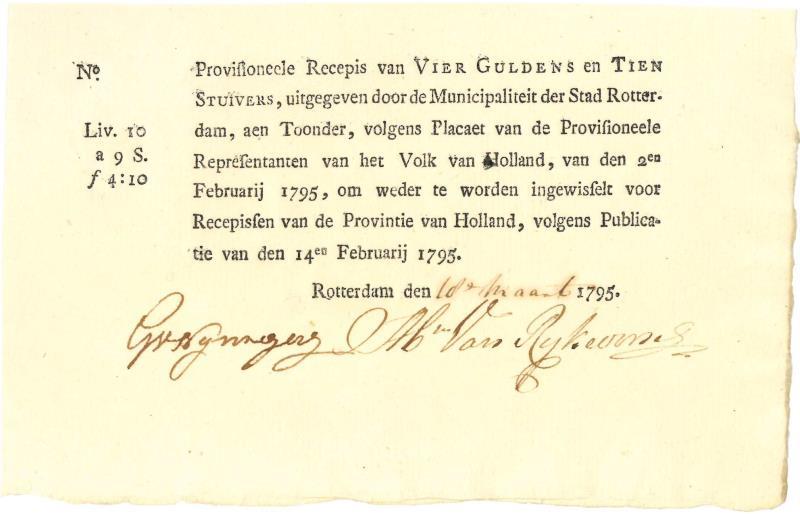 No.
Liv. 10
a 9 S.
f 4:10
Provisioneele Recepis van VIER GULDENS en TIEN
STUIVERS, uitgegeven door de Municipaliteit der Stad Rotter-
dam, aen Toonder, volgens Placaet van de Provisioneele
Repręsentanten van het Volk van Holland, van den 2en
Februarij 1795, om weder te worden ingewisselt voor
Recepissen van de Provintie van Holland, volgens Publica-
tie van den 14en Februarij 1795.
Rotterdam den 10e Maart 1795.
Van